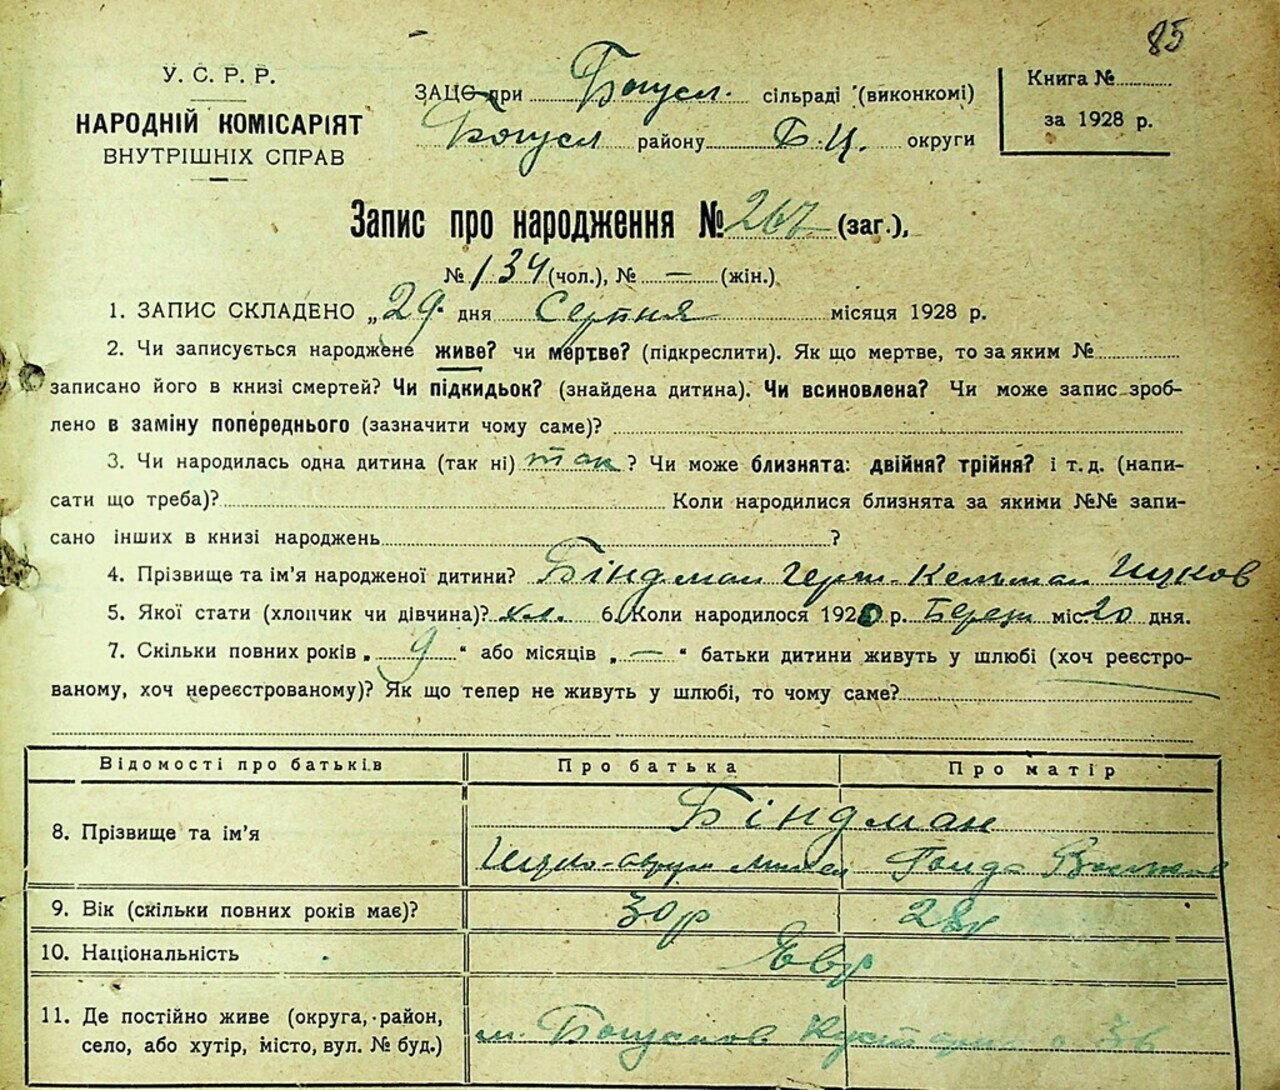 85
У. С. Р. Р.
НАРОДНІЙ КОМІСАРІЯТ
ВНУТРІШНІХ СПРАВ
ЗАЦС при Богусл. сільраді (виконкомі)
Богусл району Б.Ц. округи
Книга №
за 1928 р.
Запис про народження № 267 (заг.),
№ 134 (чол.), № — (жін.)
1. ЗАПИС СКЛАДЕНО „29" дня Серпня місяця 1928 р.
2. Чи записується народжене живе? чи мертве? (підкреслити). Як що мертве, то за яким №
записано його в книзі смертей? Чи підкидьок? (знайдена дитина). Чи всиновлена? Чи може запис зроб-
лено в заміну попереднього (зазначити чому саме)?
3. Чи народилась одна дитина (так ні) так? Чи може близнята: двійня? трійня? і т. д. (напи-
сати що треба)? Коли народилися близнята за якими №№ запи-
сано інших в книзі народжень ?
4. Прізвище та ім'я народженої дитини? Біндман Герш-Кельман Ицков
5. Якої стати (хлопчик чи дівчина)? хл. 6. Коли народилося 192 р. Берез міс. 20 дня.
7. Скільки повних років „ 9 " або місяців „ — " батьки дитини живуть у шлюбі (хоч реєстро-
ваному, хоч нереєстрованому)? Як що тепер не живуть у шлюбі, то чому саме?
Відомості про батьків Про батька Про матір
8. Прізвище та ім'я Біндман
9. Вік (скільки повних років має)? 30 р 28 р
10. Національність Євр
11. Де постійно живе (округа, район,
село, або хутір, місто, вул. № буд.) м.